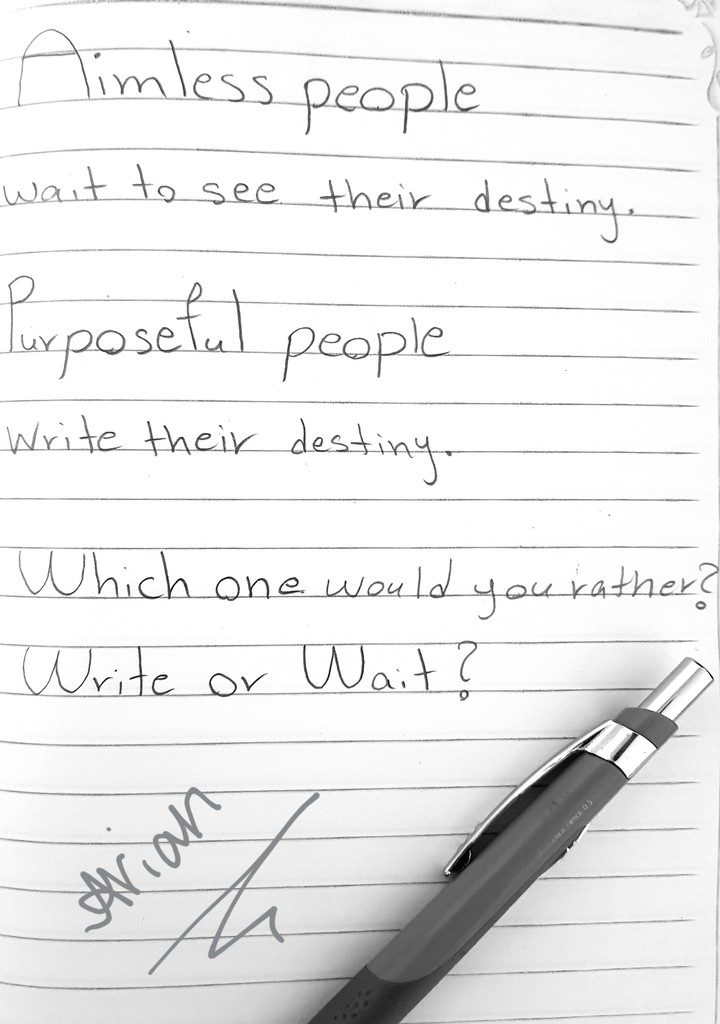 Aimless people
wait to see their destiny.
Purposeful people
write their destiny.
Which one would you rather?
Write or Wait?
Arian